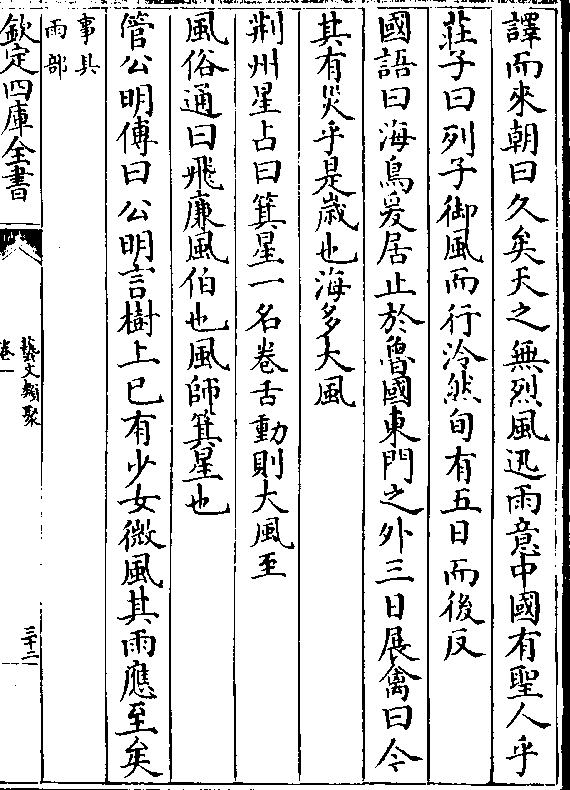 譯而來朝曰久矣天之無烈風迅雨意中國有聖人乎
莊子曰列子御風而行泠然旬有五日而後反
國語曰海鳥爰居止於魯國東門之外三日展禽曰今
其有災乎是歲也海多大風
荆州星占曰箕星一名卷舌動則大風至
風俗通曰飛廉風伯也風師箕星也
管公明傳曰公明言樹上已有少女微風其雨應至矣
事具
雨部
欽定四庫全書
藝文類聚
卷一
三十二